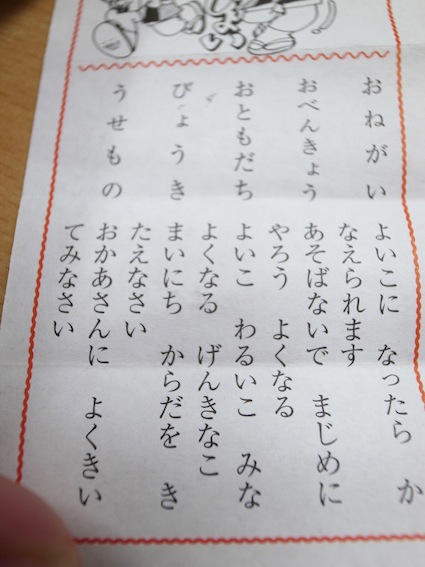 おねがい よいこに なったら か
なえられます
おべんきょう あそばないで まじめに
やろう よくなる
おともだち よいこ わるいこ みな
よくなる げんきなこ
びょうき まいにち からだを き
たえなさい
うせもの おかあさんに よくきい
てみなさい